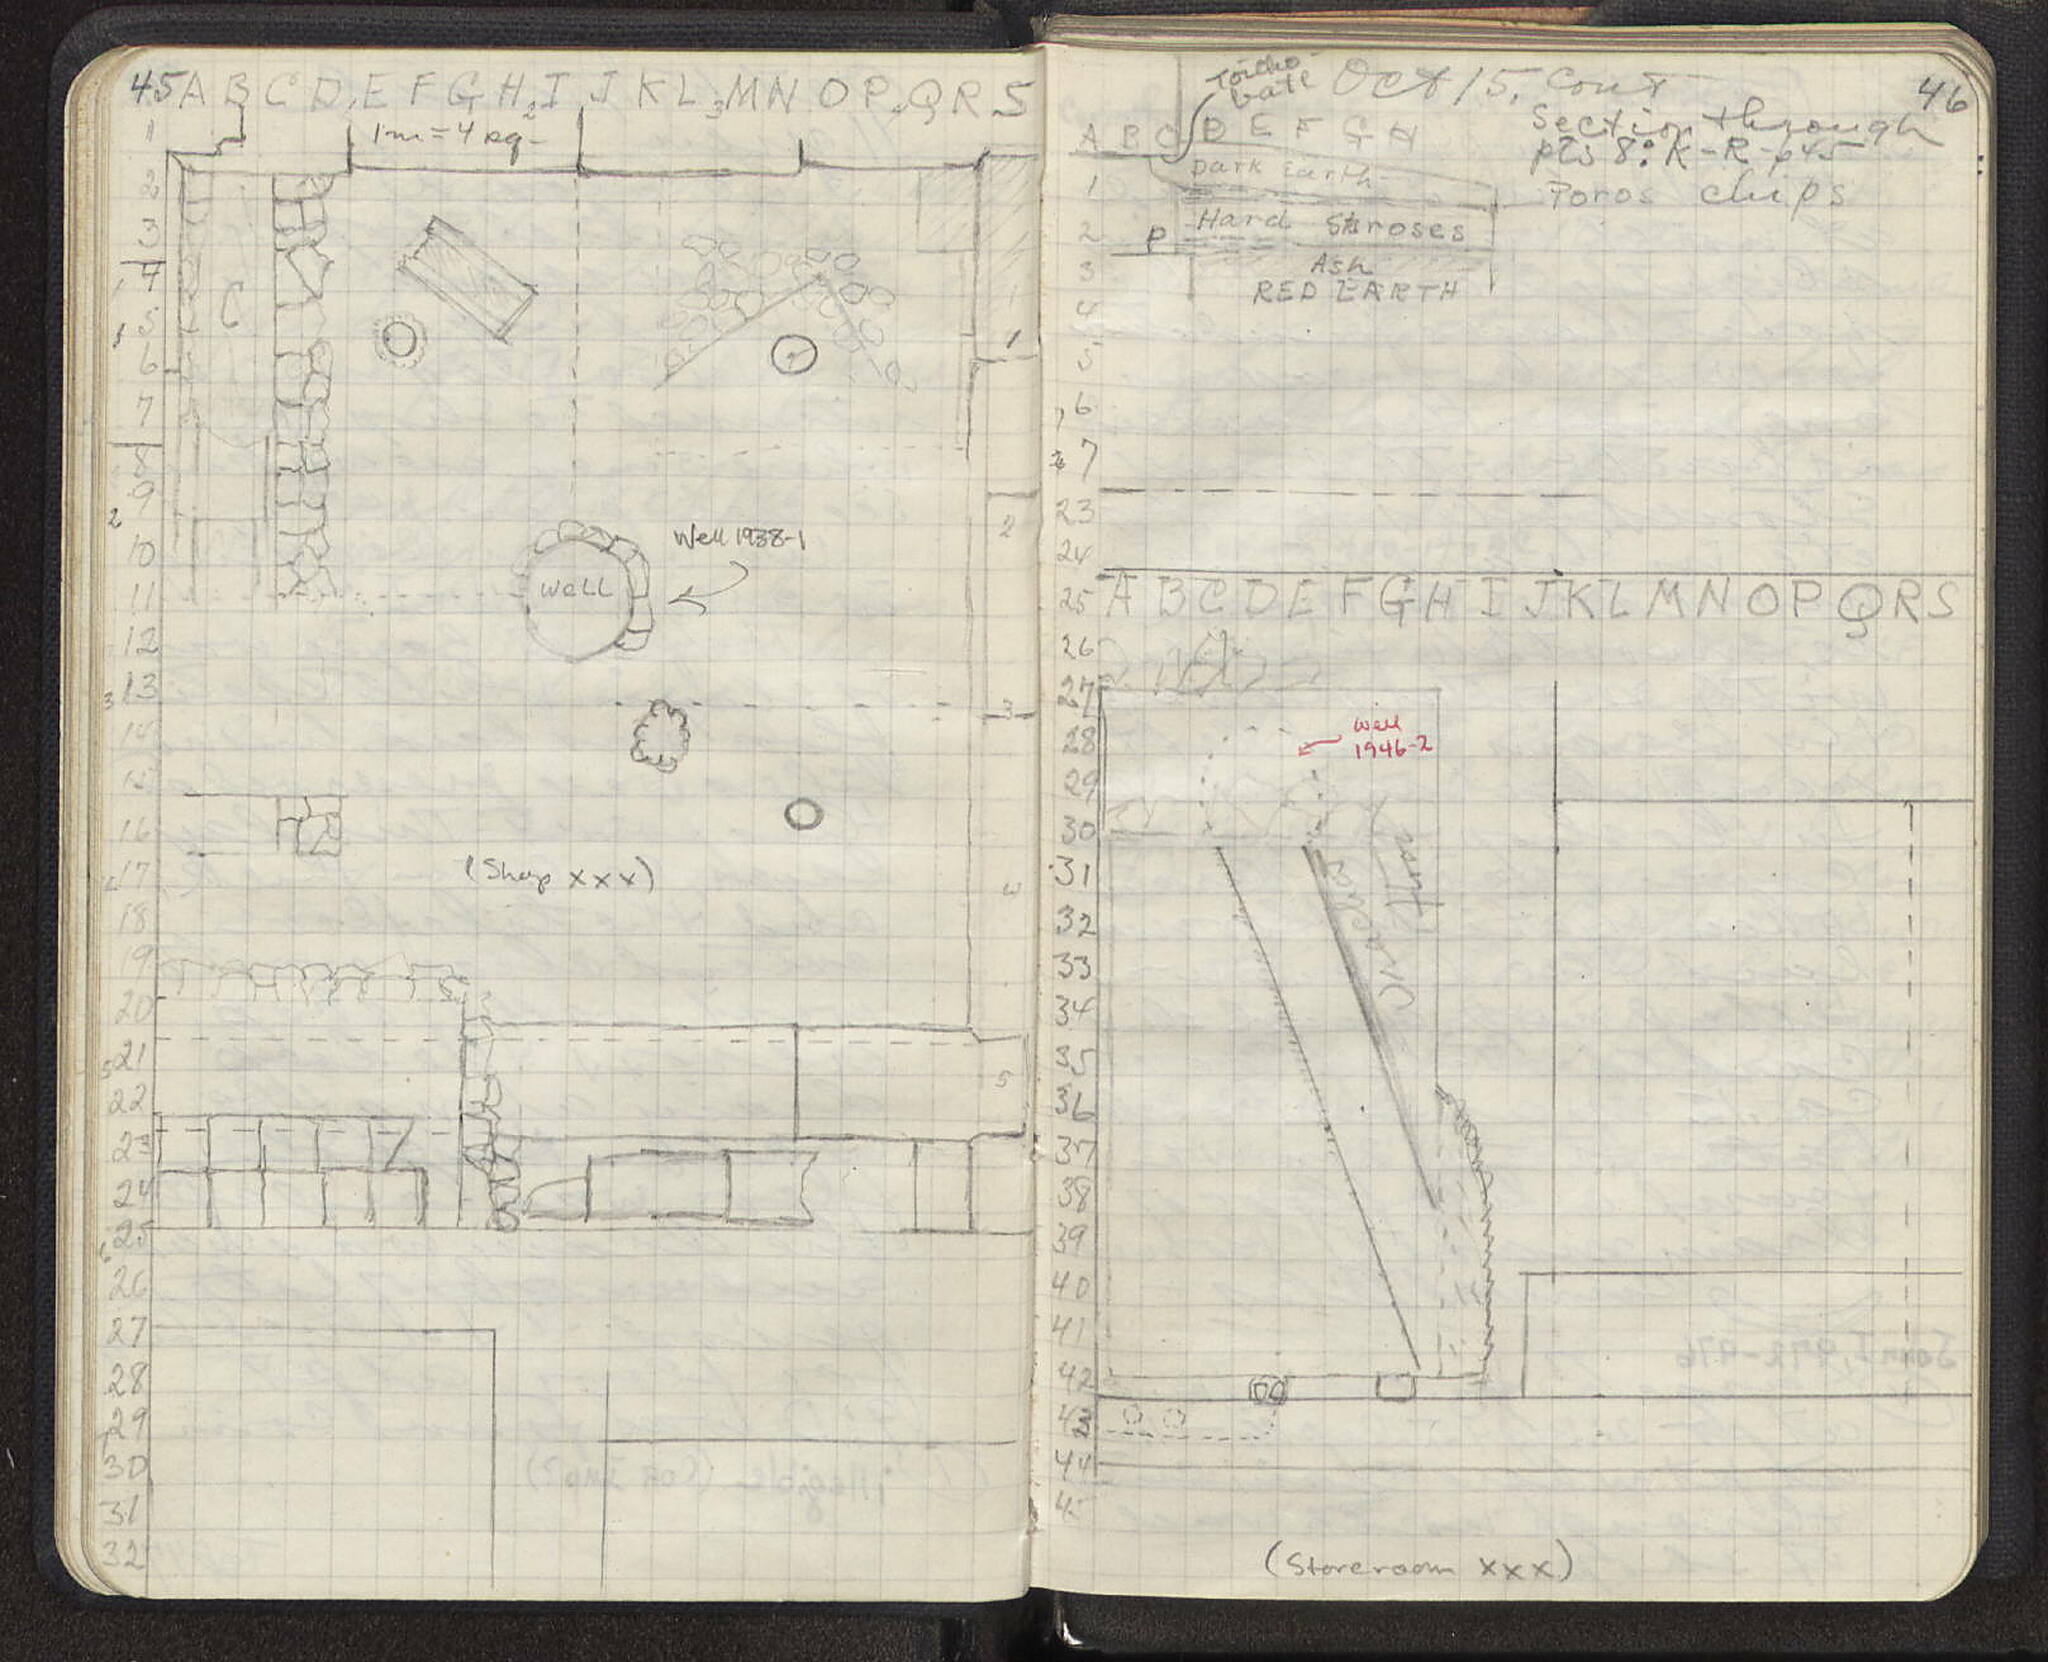 45 A B C D E F G H I J K L M N O P Q R S
1m = 4 sq.
1
2
3
4
5
6
7
8
9
10
11
12
13
14
15
16
17
18
19
20
21
22
23
24
25
26
27
28
29
30
31
32
C
1
2
3
4
5
Well 1938-1
Well
(Shop XXX)
Oct 15. Cont
46
Section through
pts 8: K-R-p45
Poros chips
A B C D E F G H
Dark Earth
Hard Stroses
P
Ash
RED EARTH
1
2
3
4
5
6
7
23
24
25 A B C D E F G H I J K L M N O P Q R S
26
27
28
29
30
31
32
33
34
35
36
37
38
39
40
41
42
43
44
45
Well
1946-2
(Storeroom XXX)